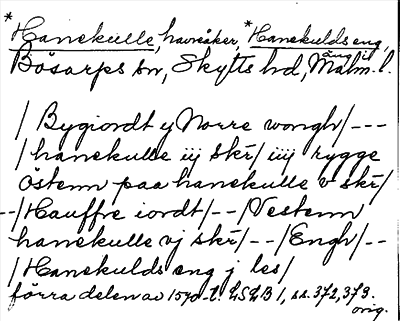 *Hanekulle, havreåker, *Hanekulds eng, äng i
Bösarps sn, Skytts hd, Malm. l.
/ Bygiordt y Norre wongh/---
/ hanekulle iij skr/ iiij rygge
östenn paa hanekulle v skr/
--/Hauffre iordt/--/Vestenn
hanekulle vj skr/--/Engh/--
/Hanekulds eng j les/
förra delen av 1570-t. LSLB 1, ss. 372, 373.
orig.